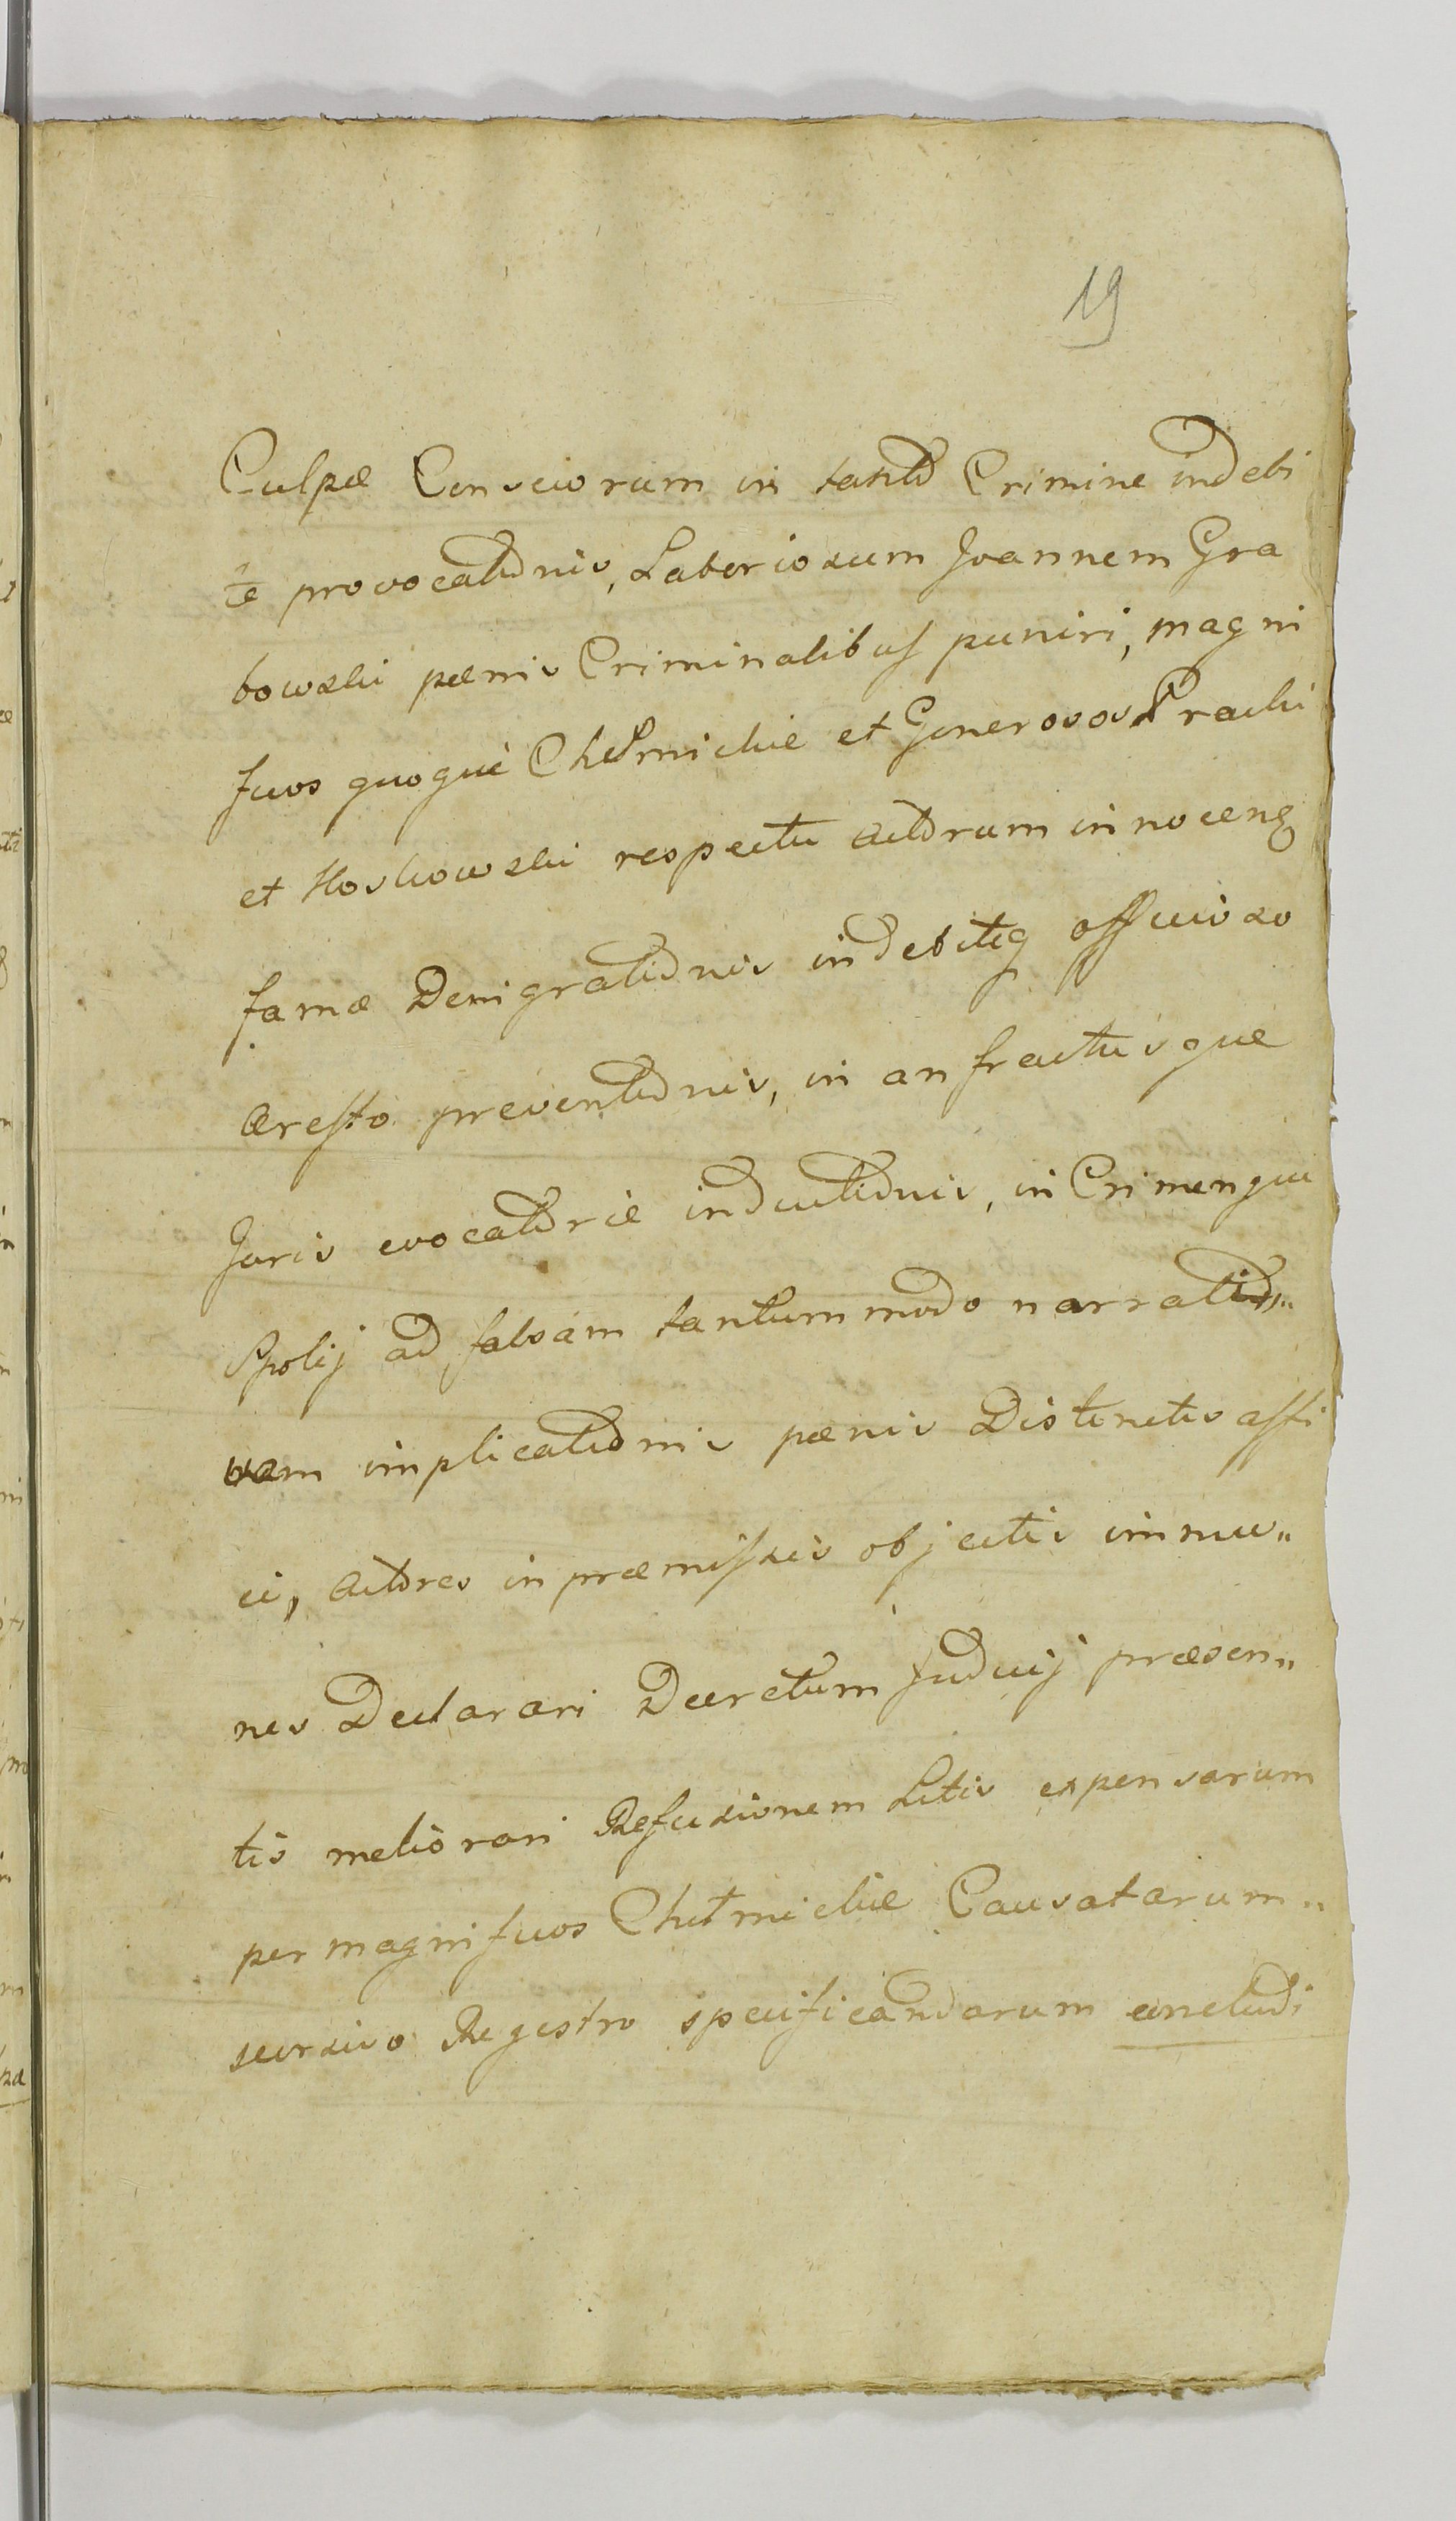 19
Culpæ Consciorum in tanto Crimine indebi
te provocationis, Laboriosum Joannem Gra
bowski pænis Criminalibus puniri, magni
ficos quoque Chełmickie et Generosos Pracki
et Moskowski respectu Actorum innoceng
famæ Denigrationis indebiteq officioso
Aresto præventionis, in anfractusque
Juris evocatoriæ inductionis, in Crimenque
Spolij ad falsam tantummodo narratio„
nem implicationis pænis Distinctis affi
ci, Actores in præmissis objectis immu„
nes Declarari Decretum Judicij præsen„
tis meliorari Refusionem Litis expensarum
per magnificos Chełmickie Causatarum„
seorsivo Regestro specificandarum concludi